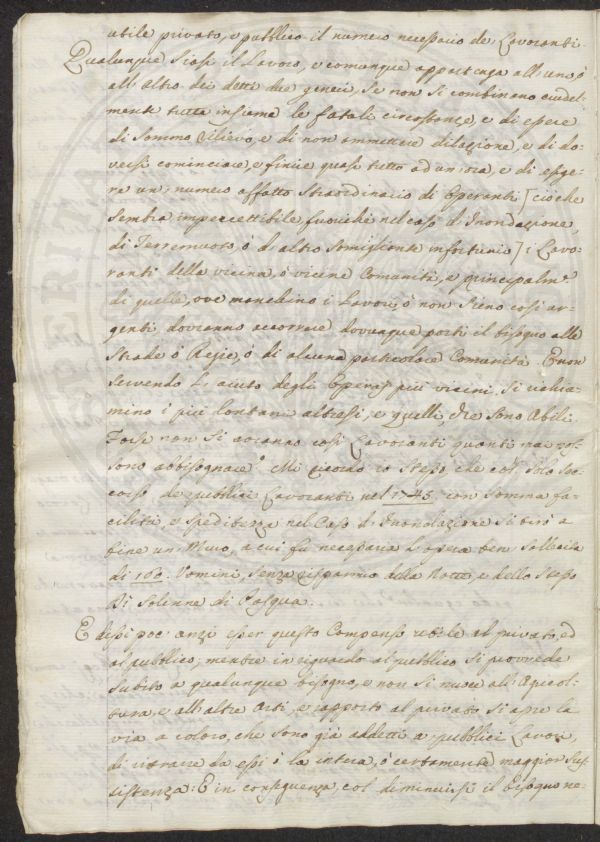 abile privato, e pubblico il numero necessario de Lavoranti.
Qualunque siasi il Lavoro, e comunque appartenga all'uno, o
all'altro dei detti due generi, se non si combinano
tutte insieme le fatali circostanze, e di essere
di sommo rilievo, e di non ammettere dilazione, e di do-
versi cominciare, e finire quasi tutto ad un'ora, e di esige-
re un numero affatto straordinario di Operanti [cioche
sembra impercettibile, fuorchè nel caso d'Inondazione,
di Terremuoto, ò d'altro somigliante infortunio]: i Lavo-
ranti della vicina, ò vicine Comunità, e principalm.e
di quelle, ove manchino i Lavori, ò non sieno così ur-
genti dovranno accorrere dovunque porti il bisogno alle
Strade ò Regie, ò di alcuna particolare Comunità. E non
servendo l'aiuto degli operaj più vicini, si richia-
mino i più lontani altresì, e quelli, che sono Abili.
Forse non si avranno così Lavoranti quanti ne pos-
sono abbisognare? Mi ricordo io stesso che col solo soc-
corso de pubblici Lavoranti nel 1745. con somma fa-
cilità, e speditezza nel Caso d'Inondazione si tirò a
fine un Muro, a cui fu necessaria l'opera ben sollecita
di 100. Uomini, senza risparmio della Notte, e dello stesso
Dì solenne di Pasqua.
E dissi poc'anzi esser questo Compenso utile al privato, ed
al pubblico, mentre in riguardo al pubblico si provvede
subito a qualunque bisogno, e non si nuoce all'Agricol-
tura, e all'altre Arti, e rapporto al privato si apre la
via a coloro, che sono già addetti a pubblici Lavori,
di ritrarre da essi ò la intera, ò certamente maggior sus-
sistenza: E in conseguenza, col diminuirsi il bisogno ne-